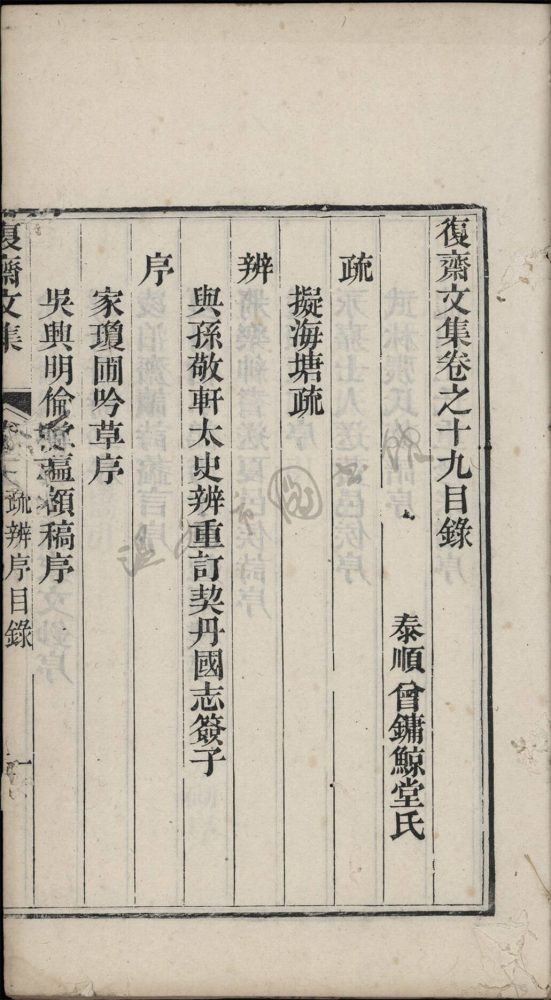 復齋文集卷之十九目錄
泰順曾鏞鯨堂氏
疏
擬海塘疏
辨
與孫敬軒太史辨重訂契丹國志簽子
序
家瓊圃吟草序
吳興明倫堂匾額稿序
復齋文集
疏辨序目錄
一